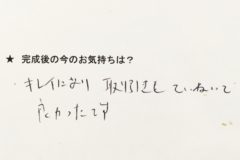 ★ 完成後の今のお気持ちは？
キレイになり 取り引きもていねいで
良かったです